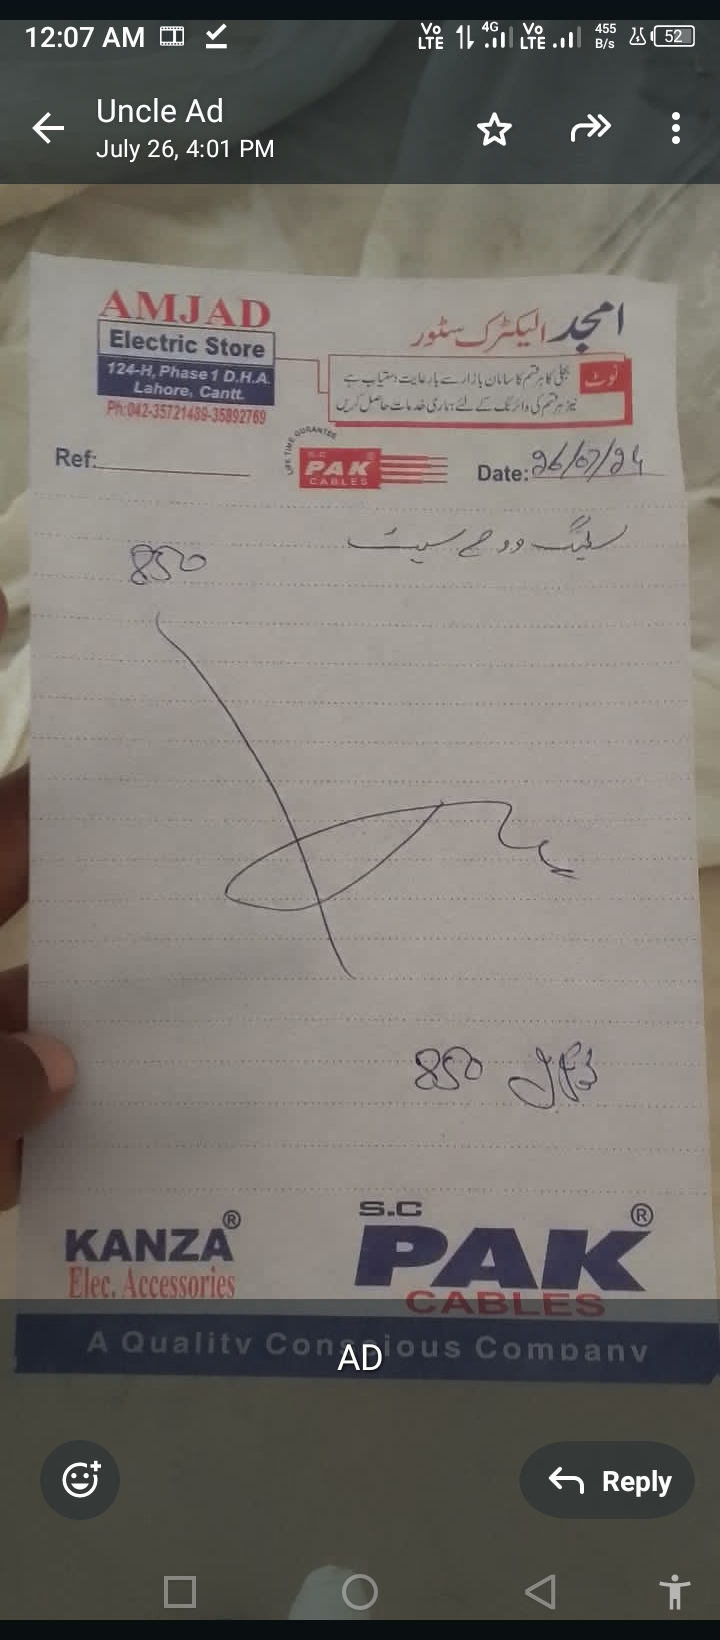 12:07 AM
Vo LTE 4G Vo LTE 455 B/s 52
Uncle Ad
July 26, 4:01 PM
AMJAD
Electric Store
124-H, Phase 1 D.H.A.
Lahore, Cantt.
Ph:042-35721489-35892769
امجد الیکٹرک سٹور
نوٹ
بجلی کا ہر قسم کا سامان بازار سے بارعایت دستیاب ہے
نیز ہر قسم کی وائرنگ کے لئے ہماری خدمات حاصل کریں
LIFE TIME GURANTEE
Ref:
S.C
PAK®
CABLES
Date: 26/07/24
سیٹ
850
850
KANZA®
Elec. Accessories
S.C
PAK®
CABLES
A Quality Conscious Company
AD
Reply